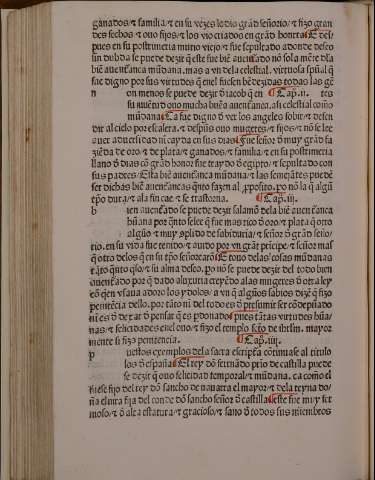 ganados ⁊ familia ⁊ en su vejes le dio grãd señorio ⁊ fizo gran
des fechos ⁊ ouo fijos ⁊ los vio criados en grãd honrra E des
pues en su postrimeria murio viejo ⁊ fue sepultado adonde deseo
sin dubda se puede dezir q̃ este fue biẽ auẽturado nõ sola mẽte
biẽ auẽturãça mũdana. mas a vn dela celestial. virtuosa spũal q̃
fue digno por sus virtudes q̃ enel fuesen bẽdezidas todas las gẽ
n on menos se puede dezir d' iacob q̃ en ¶ Cap. ij. tes
su juuẽtud ouo mucha buẽa auenturãça. asi celestial como
mũdana ¶ Ca fue digno d' ver los angeles sobir ⁊ desen
dir al cielo por escalera. ⁊ despũs ouo mugeres ⁊ fijos ⁊ nõ se lee
auer aduersidad ni cayda en sus dias q̃ fue señor d' muy grãd fa
ziẽda de oro ⁊ de plata ⁊ ganados ⁊ familia ⁊ en su postrimeria
lleno d' dias cõ grãd honor fue traydo d' egipto ⁊ sepultado con
sus padres Esta biẽ auenturãça mũdana ⁊ las semejãtes puede
ser dichas biẽ auenturãças q̃nto fazen al pposito. po nõ la q̃ algũ
tpo dura ⁊ ala fin cae ⁊ se trastorna. ¶ Cap. iij.
b ien auenturado se puede dezir salamõ dela biẽ auenturãça
hũana por q̃nto se lee q̃ fue mas rico d' oro ⁊ plata q̃ otro
algũo ⁊ muy cõplido de sabiduria ⁊ señor d' grãd seño
rio. en su vida fue tenido ⁊ auido por vn grãt prĩcipe ⁊ señor mas
q̃ otro delos q̃ en su tpo señorearõ E touo delas cosas mũdanas
tãto q̃nto q̃so ⁊ su alma deseo. po nõ se puede dezir del todo bien
auenturado por q̃ dado a luxuria creyẽdo alas mugeres d' otra ley
cõ q̃en yua a adorar los ydolos. ⁊ a vn q̃ algũos sabios dizẽ q̃ fizo
penitẽcia dello. por tãto ni del todo es d' presumir ser cõdepnado
ni es d' dezir d' pensar q̃ es pdonado pues tãtas virtudes hũa
nas ⁊ felicidades enel ouo ⁊ fizo el templo scto de ihrlm. mayor
mente si fizo penitencia. ¶ Cap. iiij.
p uestos exemplos dela sacra escriptura cõtinuase al titulo
los d' españa El rey dõ fernãdo prio de castilla puede
se dezir q̃ ouo felicidad temporal ⁊ mũdana. ca como el
fuese fijo del rey dõ sancho de nauarra el mayor ⁊ dela reyna do
ña eluira fija del conde dõ sancho señor d' castilla este fue muy fer
moso ⁊ d' alta estatura ⁊ gracioso ⁊ sano d' todos sus miembros